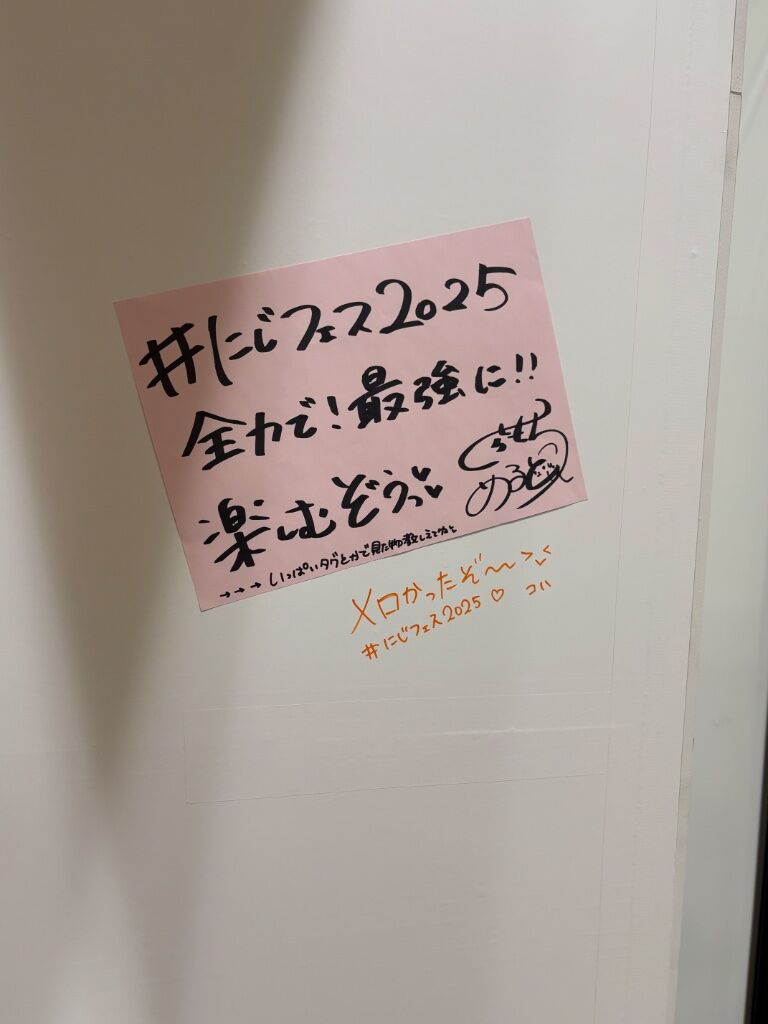 #にじフェス2025
全力で!最強に!!
楽しむぞうっ♥
くらもち
める
→→→ いっぱいタグとかで見た物教えてね
メロかったぞ〜〜
#にじフェス2025♡